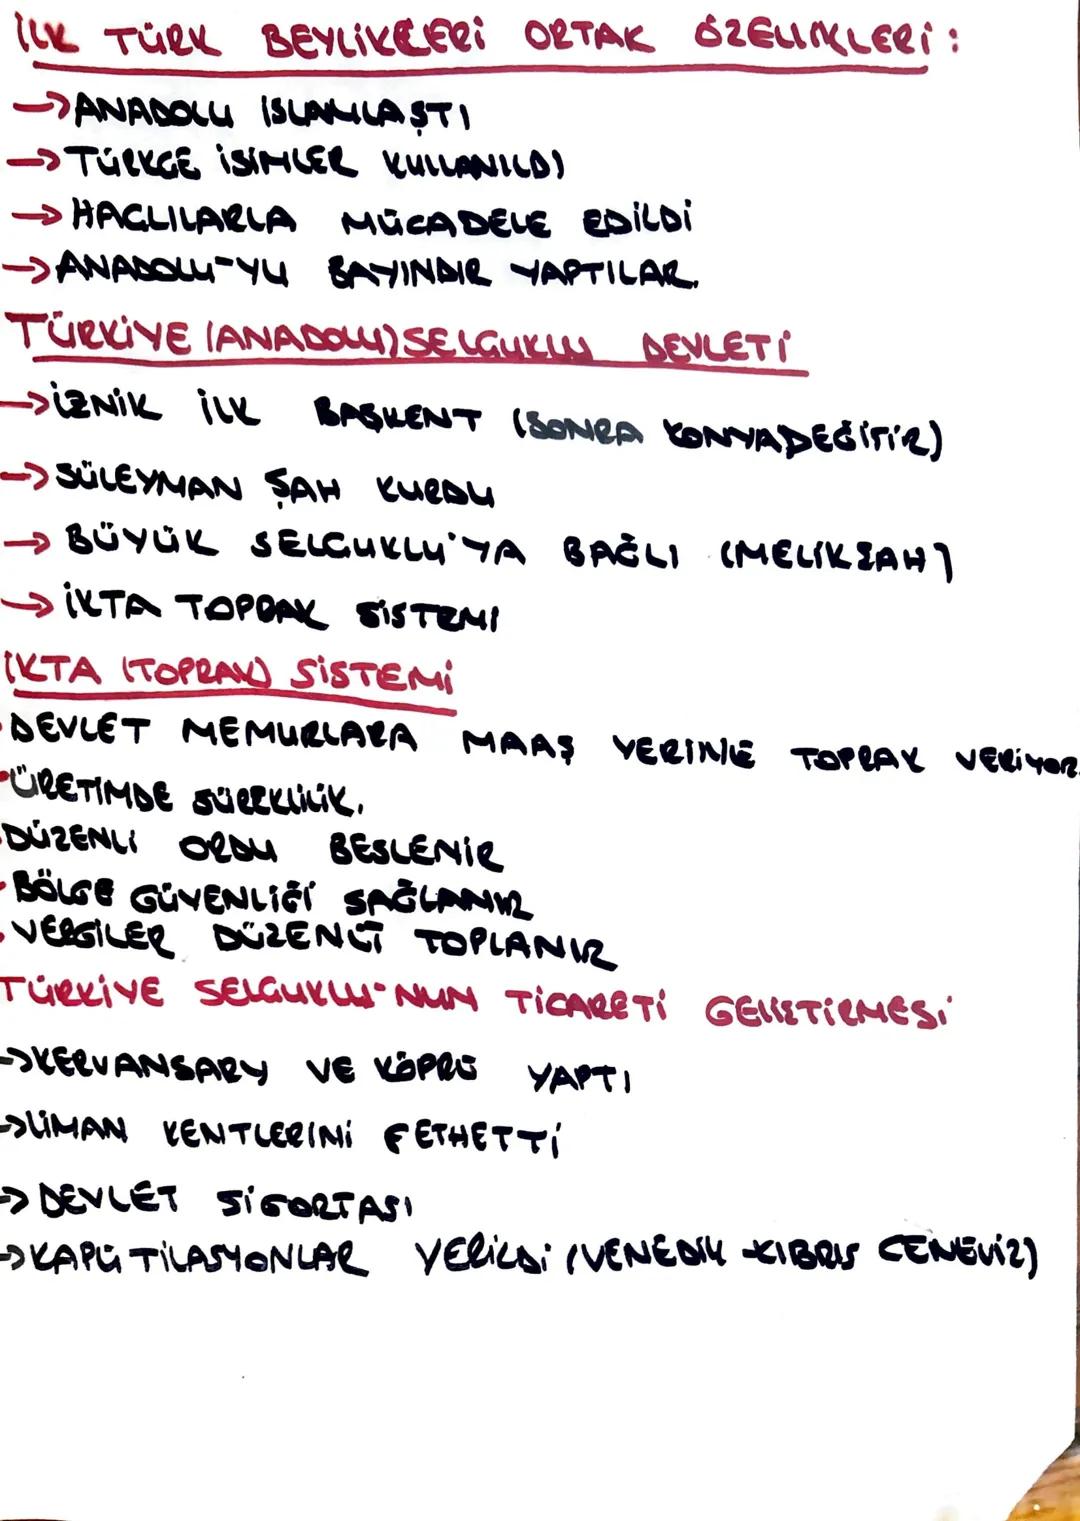 İLK TÜRK BEYLİKLERİ ORTAK ÖZELLİKLERİ:
→ANADOLU İSLAMLAŞTI
→TÜRKÇE İSİMLER KULLANILDI
→HAÇLILARLA MÜCADELE EDİLDİ
→ANADOLU-YU BAYINDIR YAPTILAR.
TÜRKİYE (ANADOLU) SELÇUKLU DEVLETİ
→İZNİK İLK BAŞKENT (SONRA KONYA DEĞİTİR)
→SÜLEYMAN ŞAH KURDU
→BÜYÜK SELÇUKLU'YA BAĞLI (MELİKŞAH)
→İKTA TOPRAK SİSTEMİ
İKTA (TOPRAK) SİSTEMİ
DEVLET MEMURLARA MAAŞ YERİNE TOPRAK VERİYOR.
•ÜRETİMDE SÜREKLİLİK.
•DÜZENLİ ORDU BESLENİR
•BÖLGE GÜVENLİĞİ SAĞLANIR
•VERGİLER DÜZENLİ TOPLANIR
TÜRKİYE SELÇUKLU-NUN TİCARETİ GELİŞTİRMESİ
→KERVANSARY VE KÖPRÜ YAPTI
→LİMAN KENTLERİNİ FETHETTİ
→DEVLET SİGORTASI
→KAPÜTİLASYONLAR VERİLDİ (VENEDİK-KIBRIS CENEVİZ)